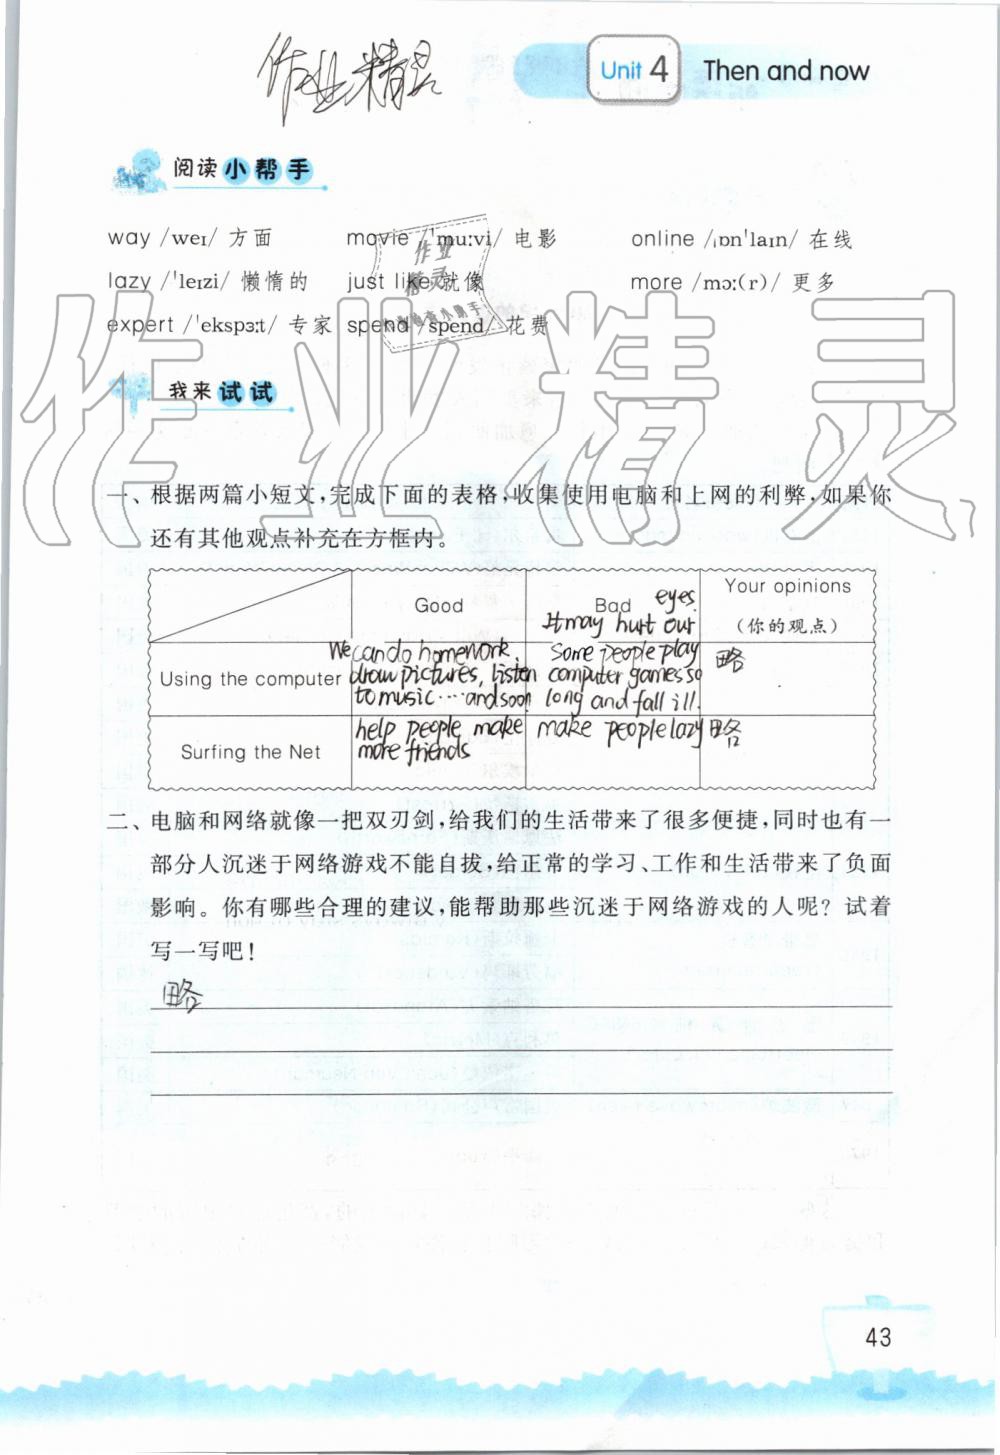 作业精灵
Unit 4 Then and now
阅读小帮手
way /weɪ/ 方面 movie /ˈmuːvi/ 电影 online /ˌɒnˈlaɪn/ 在线
lazy /ˈleɪzi/ 懒惰的 just like 就像 more /mɔː(r)/ 更多
expert /ˈekspɜːt/ 专家 spend /spend/ 花费
作业
精灵
作业检查小助手
作业精灵
我来试试
一、根据两篇小短文,完成下面的表格,收集使用电脑和上网的利弊,如果你
还有其他观点补充在方框内。
Good Bad Your opinions
(你的观点)
Using the computer
We can do homework,
draw pictures, listen
to music……and soon
It may hurt our eyes.
Some people play
computer games so
long and fall ill.
略
Surfing the Net
help people make
more friends
make people lazy
略
二、电脑和网络就像一把双刃剑,给我们的生活带来了很多便捷,同时也有一
部分人沉迷于网络游戏不能自拔,给正常的学习、工作和生活带来了负面
影响。你有哪些合理的建议,能帮助那些沉迷于网络游戏的人呢?试着
写一写吧!
略
43